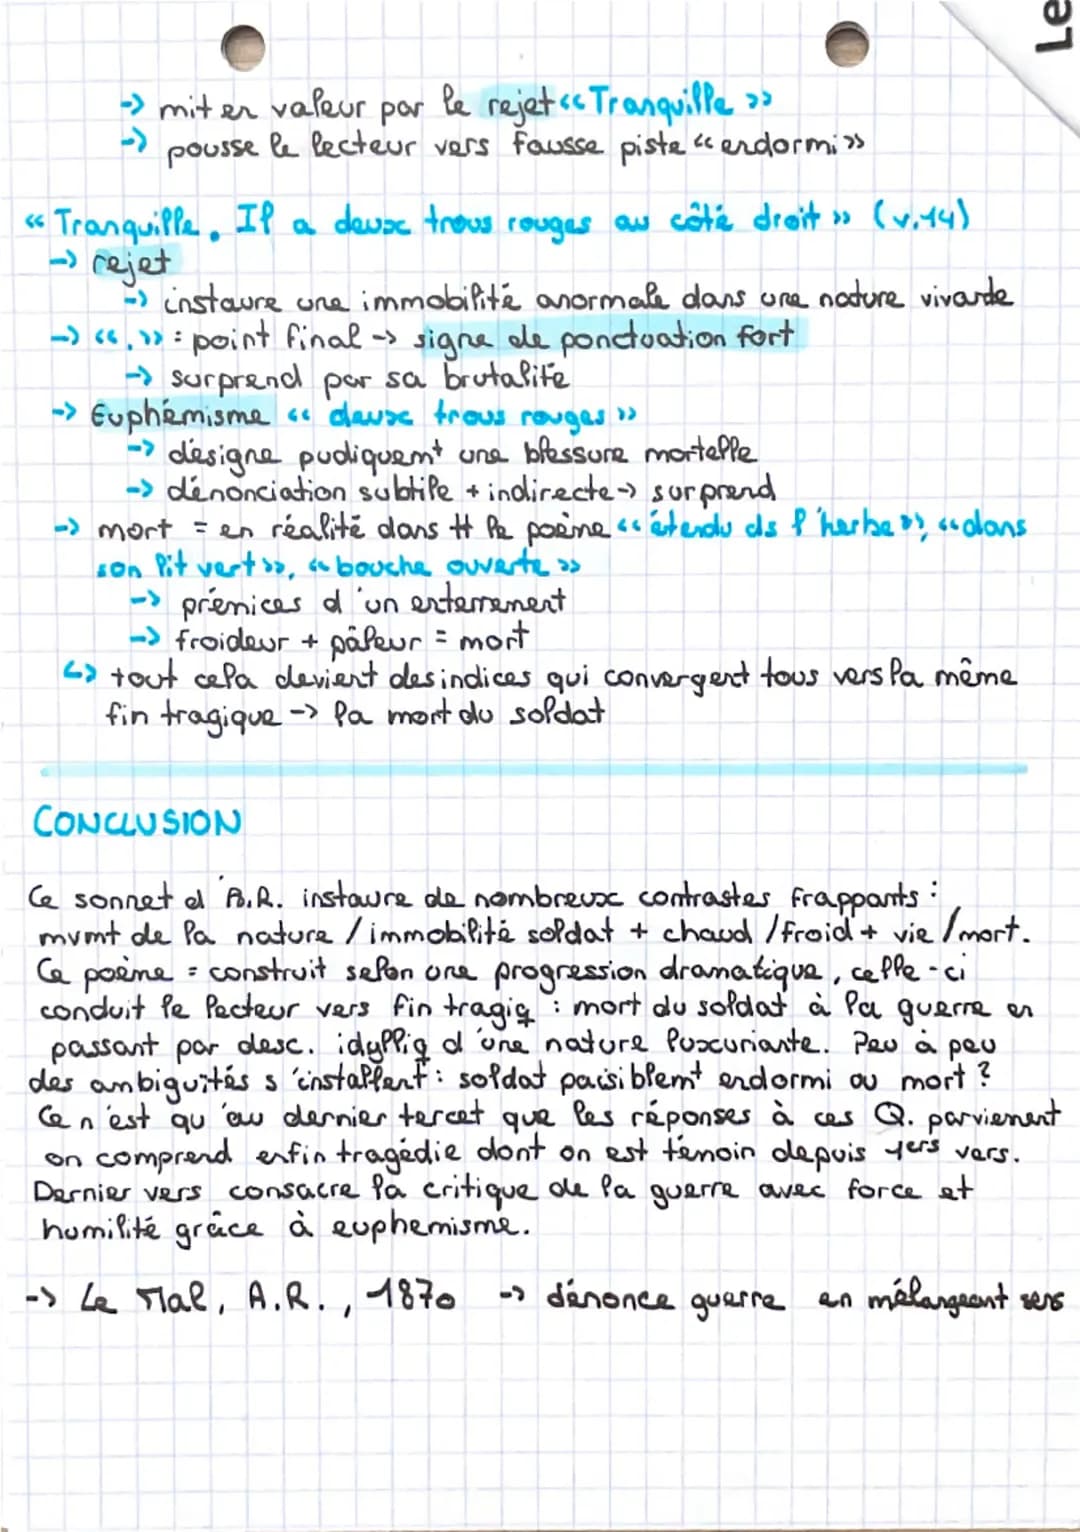 Le
-> mit en valeur par le rejet << Tranquille >>
-> pousse le lecteur vers fausse piste << endormi >>
<< Tranquille. Il a deux trous rouges au côté droit >> (v.14)
-> rejet
-> instaure une immobilité anormale dans une nature vivante
-> << . >> : point final -> signe de ponctuation fort
-> surprend par sa brutalité
-> Euphémisme << deux trous rouges >>
-> désigne pudiquemt une blessure mortelle
-> dénonciation subtile + indirecte -> surprend
-> mort = en réalité dans tt le poème << étendu ds l'herbe >>, << dans
son lit vert >>, << bouche ouverte >>
-> prémices d'un enterrement
-> froideur + pâleur = mort
↳ tout cela devient des indices qui convergent tous vers la même
fin tragique -> la mort du soldat
CONCLUSION
Ce sonnet d'A.R. instaure de nombreux contrastes frappants :
mvmt de la nature / immobilité soldat + chaud / froid + vie / mort.
Ce poème = construit selon une progression dramatique, celle-ci
conduit le lecteur vers fin tragiq : mort du soldat à la guerre en
passant par desc. idylliq d'une nature luxuriante. Peu à peu
des ambiguités s'installent : soldat paisiblemt endormi ou mort ?
Ce n'est qu'au dernier tercet que les réponses à ces Q. parviennent
on comprend enfin tragédie dont on est témoin depuis 1ers vers.
Dernier vers consacre la critique de la guerre avec force et
humilité grâce à euphemisme.
-> Le Mal, A.R., 1870 -> dénonce guerre en mélangeant sens